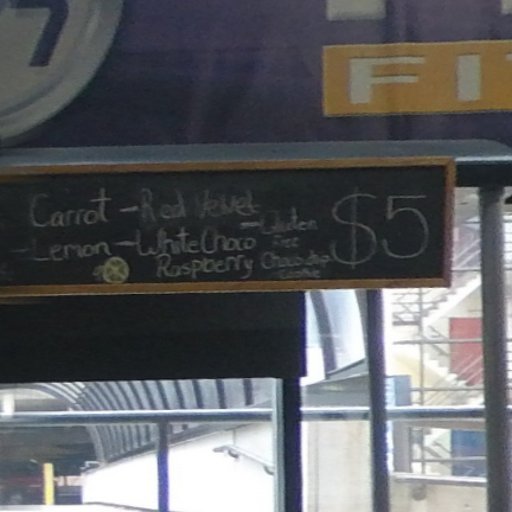 7
FI
Carrot - Red Velvet
- Lemon - White Choco
Raspberry
- Gluten
Free
Choco chip
Cookie
$5